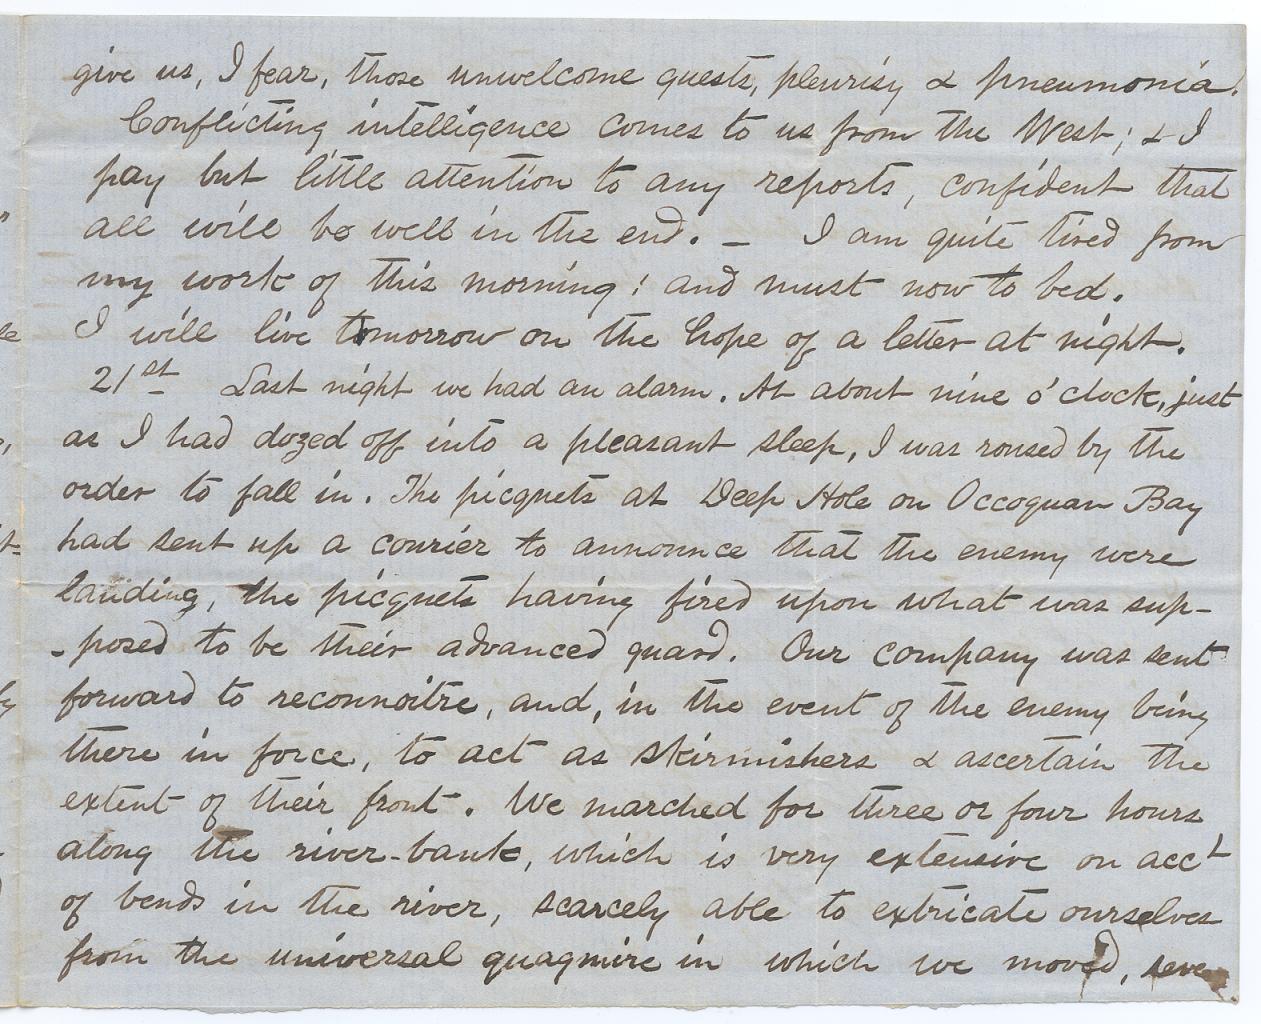 give us, I fear, those unwelcome guests, pleurisy & pneumonia.
Conflicting intelligence comes to us from the West; & I
pay but little attention to any reports, confident that
all will be well in the end. – I am quite tired from
my work of this morning; and must now to bed.
I will live tomorrow on the hope of a letter at night.
21st Last night we had an alarm. At about nine o'clock, just
as I had dozed off into a pleasant sleep, I was roused by the
order to fall in. The picquets at Deep Hole on Occoquan Bay
had sent up a courier to announce that the enemy were
landing, the picquets having fired upon what was sup-
-posed to be their advanced guard. Our company was sent
forward to reconnoitre, and, in the event of the enemy being
there in force, to act as skirmishers & ascertain the
extent of their front. We marched for three or four hours
along the river-bank, which is very extensive on acct
of bends in the river, scarcely able to extricate ourselves
from the universal quagmire in which we moved,